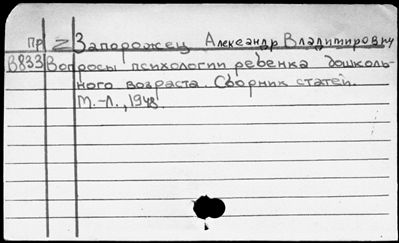 Пр Z Запорожец Александр Владимирович
В833 Вопросы психологии ребенка дошколь-
ного возраста. Сборник статей.
М.-Л., 1948.